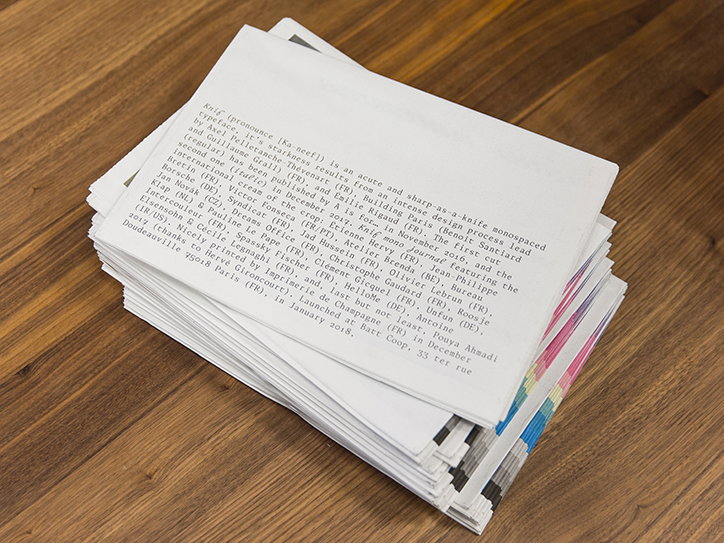 Knif (pronounce [Ka-neef]) is an acute and sharp-as-a-knife monospaced
typeface, it's starkness results from an intense design process lead
by Axel Pelletanche Thévenart (FR), Building Paris (Benoît Santiard
and Guillaume Grall) (FR), and Emilie Rigaud (FR). The first cut
(regular) has been published by A is for… in November 2016, and the
second one (italic) in December 2017. Knif mono journal featuring the
international cream of the crop: Etienne Hervy (FR), Jean-Philippe
Bretin (FR), Victor Fonseca (FR/PT), Atelier Brenda (BE), Bureau
Jan Novák (CZ), Syndicat (FR), Christophe Gaudard (FR), Roosje
Klap (NL) & Pauline Le Pape (FR), Olivier Lebrun (FR),
Intercouleur (FR), Spassky Fischer (FR), HelloMe (DE), Antoine
Elsensohn & Cécile Legnaghi (FR), and, last but not least, Pouya Ahmadi
(IR/US). Nicely printed by Imprimerie de Champagne (FR) in December
2017 (thanks to Hervé Gironcourt). Launched at Batt Coop, 33 ter rue
Doudeauville 75018 Paris (FR), in January 2018.